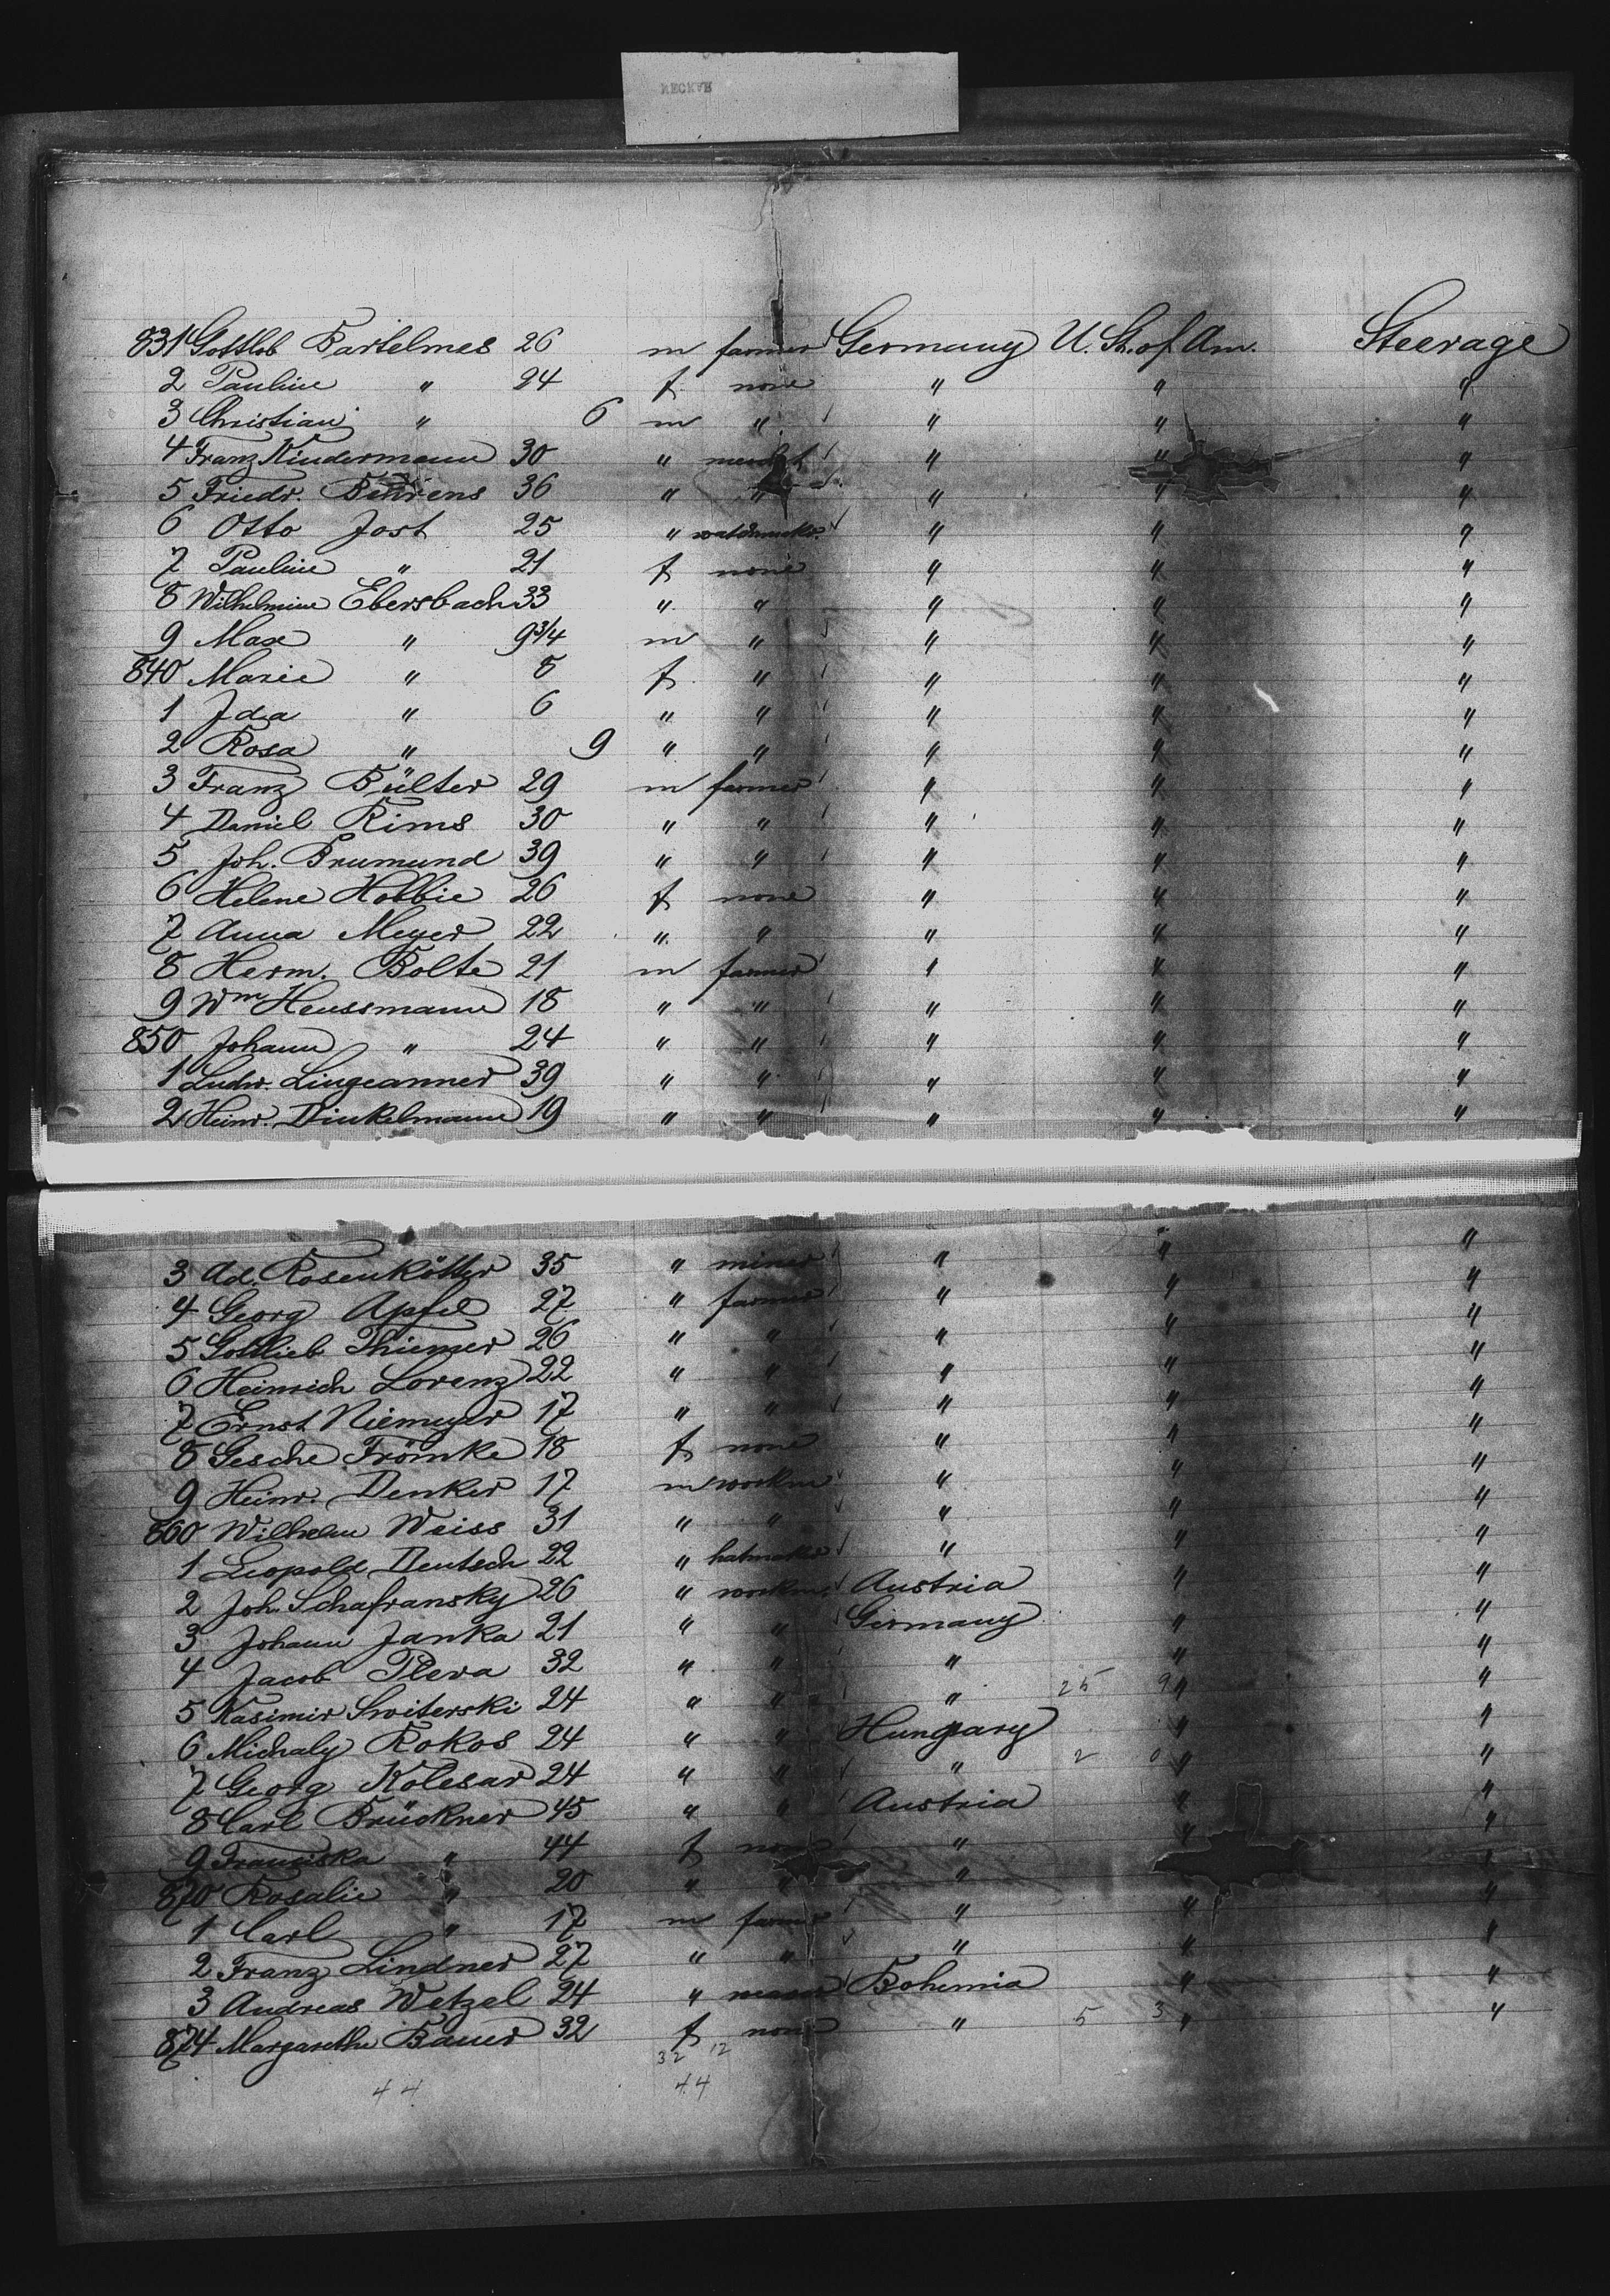 831 Gottlob Bartelmes 26 m farmer Germany U. St. of Am. Steerage
2 Pauline " 24 f none " " "
3 Christian " 6 m " " " "
4 Franz Kindermann 30 " " " "
5 Friedr. Behrens 36 " " " " "
6 Otto Jost 25 " watchmakr. " " "
7 Pauline " 21 f none " " "
8 Wilhelmine Ebersbach 33 " " " " "
9 Max " 9 3/4 m " " " "
840 Marie " 8 f " " " "
1 Ida " 6 " " " " "
2 Rosa " 9 " " " " "
3 Franz Bülter 29 m farmer " " "
4 Daniel Rims 30 " " " " "
5 Joh. Brumund 39 " " " " "
6 Helene Hobbie 26 f none " " "
7 Anna Meyer 22 " " " " "
8 Herm. Bolte 21 m farmer " " "
9 Wm Heussmann 18 " " " " "
850 Johann " 24 " " " " "
1 Ludw. Lingeanner 39 " " " " "
2 Heinr. Dinkelmann 19 " " " " "
3 Ad. Rosenkötter 35 " miner " " "
4 Georg Apfel 27 " farmer " " "
5 Gottlieb Thiemer 26 " " " " "
6 Heinrich Lorenz 22 " " " " "
7 Ernst Niemeyer 17 " " " " "
8 Gesche Frömke 18 f none " " "
9 Heinr. Denker 17 m workm " " "
860 Wilhelm Weiss 31 " " " " "
1 Leopold Deutsch 22 " hatmakr " " "
2 Joh. Schafransky 26 " workm Austria " "
3 Johann Janka 21 " " Germany " "
4 Jacob Plewa 32 " " " " "
5 Kasimir Switerski 24 " " " 25 9 " "
6 Michaly Rokos 24 " " Hungary " "
7 Georg Kolesar 24 " " " 2 0 " "
8 Carl Brückner 45 " " Austria " "
9 Franziska " 44 f none " " "
870 Rosalie " 20 " " " "
1 Carl " 17 m farmer " " "
2 Franz Lindner 27 " " " " "
3 Andreas Wetzel 24 " Bohemia " "
874 Margarethe Bauer 32 f none " 5 3 " "
32 12
44 44